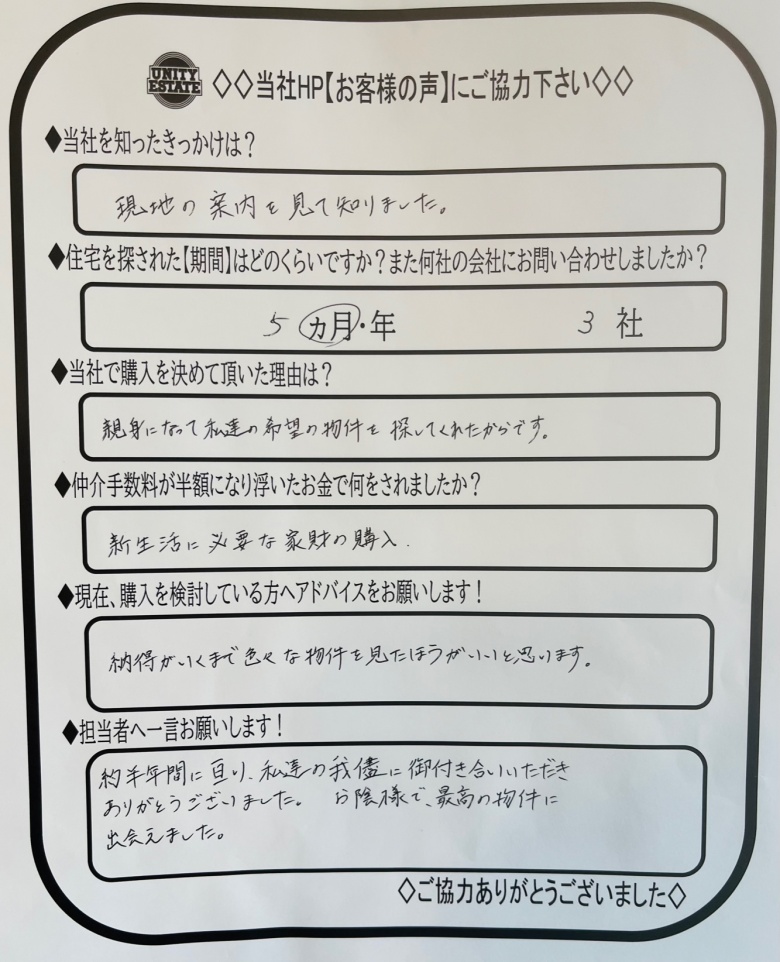 UNITY
ESTATE
◇◇当社HP【お客様の声】にご協力下さい◇◇
◆当社を知ったきっかけは？
現地の案内を見て知りました。
◆住宅を探された【期間】はどのくらいですか？また何社の会社にお問い合わせしましたか？
5 カ月・年 3 社
◆当社で購入を決めて頂いた理由は？
親身になって私達の希望の物件を探してくれたからです。
◆仲介手数料が半額になり浮いたお金で何をされましたか？
新生活に必要な家財の購入.
◆現在、購入を検討している方へアドバイスをお願いします！
納得がいくまで色々な物件を見たほうがいいと思います。
◆担当者へ一言お願いします！
約半年間に亘り、私達の我儘に御付き合いいただき
ありがとうございました。 お陰様で、最高の物件に
出会えました。
◇ご協力ありがとうございました◇